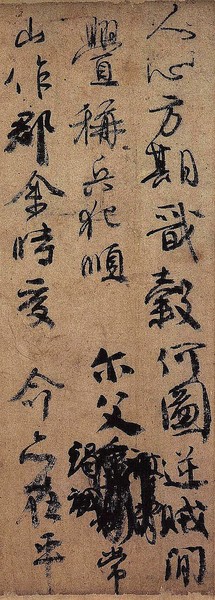 人心方期戩穀何圖逆賊閒
釁稱兵犯順尔父常
山作郡余時受命亦在平